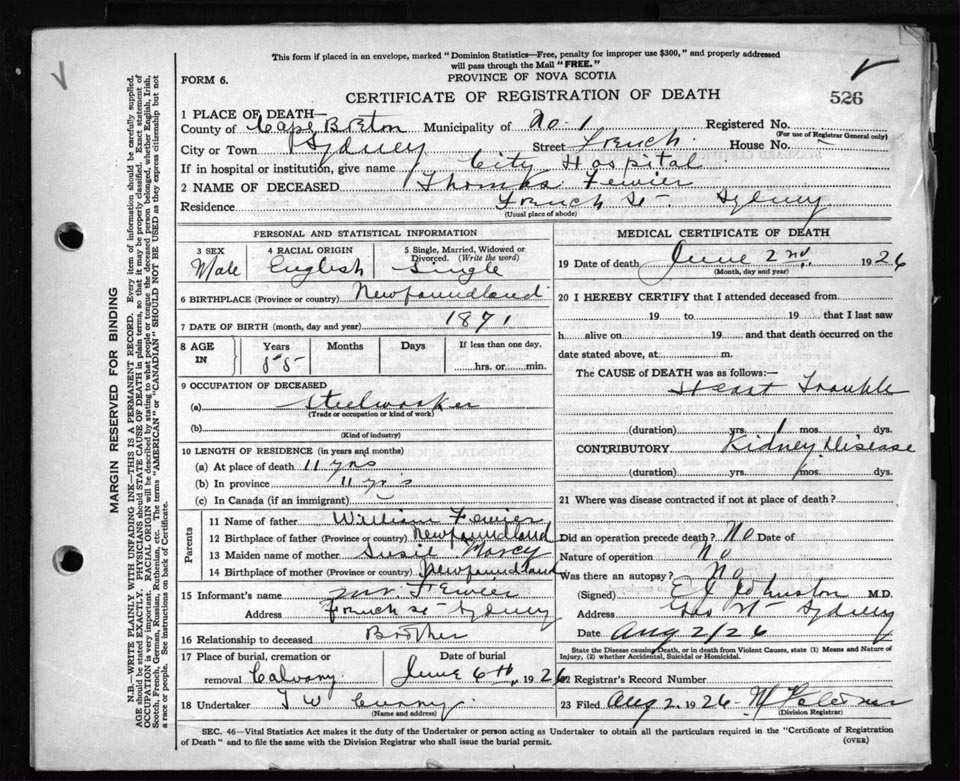 This form if placed in an envelope, marked "Dominion Statistics—Free, penalty for improper use $300," and properly addressed
will pass through the Mail "FREE."
FORM 6.
PROVINCE OF NOVA SCOTIA
CERTIFICATE OF REGISTRATION OF DEATH
526
1 PLACE OF DEATH—
County of Cape Breton Municipality of No. 1 Registered No.
(For use of Registrar General only)
City or Town Sydney Street French House No.
If in hospital or institution, give name City Hospital
2 NAME OF DECEASED Thomas Fewier
Residence French St Sydney
(Usual place of abode)
PERSONAL AND STATISTICAL INFORMATION
3 SEX Male
4 RACIAL ORIGIN English
5 Single, Married, Widowed or Divorced. (Write the word) Single
6 BIRTHPLACE (Province or country) Newfoundland
7 DATE OF BIRTH (month, day and year) 1871
8 AGE IN Years Months Days If less than one day,
55 hrs. or min.
9 OCCUPATION OF DECEASED
(a) Steelworker
(Trade or occupation or kind of work)
(b)
(Kind of industry)
10 LENGTH OF RESIDENCE (in years and months)
(a) At place of death 11 yrs
(b) In province 11 yrs
(c) In Canada (if an immigrant)
Parents
11 Name of father William Fewier
12 Birthplace of father (Province or country) Newfoundland
13 Maiden name of mother Susie
14 Birthplace of mother (Province or country) Newfoundland
15 Informant's name Fewier
Address French St Sydney
16 Relationship to deceased Brother
17 Place of burial, cremation or Date of burial
removal Calvary June 6th, 1926
18 Undertaker T W Curry
(Name and address)
MEDICAL CERTIFICATE OF DEATH
19 Date of death June 2nd, 1926
(Month, day and year)
20 I HEREBY CERTIFY that I attended deceased from
19 to 19 that I last saw
h alive on 19 and that death occurred on the
date stated above, at m.
The CAUSE of DEATH was as follows:—
Heart Trouble
(duration) yrs. 1 mos. dys.
CONTRIBUTORY Kidney Disease
(duration) yrs. mos. dys.
21 Where was disease contracted if not at place of death?
Did an operation precede death? No Date of
Nature of operation No
Was there an autopsy? No
(Signed) E J Johnston M.D.
Address Geo St Sydney
Date Aug 2/26
State the Disease causing Death, or in death from Violent Causes, state (1) Means and Nature of
Injury, (2) whether Accidental, Suicidal or Homicidal.
22 Registrar's Record Number
23 Filed Aug 2. 1926
(Division Registrar)
SEC. 46—Vital Statistics Act makes it the duty of the Undertaker or person acting as Undertaker to obtain all the particulars required in the "Certificate of Registration
of Death" and to file the same with the Division Registrar who shall issue the burial permit.
(OVER)
MARGIN RESERVED FOR BINDING
N.B.—WRITE PLAINLY WITH UNFADING INK—THIS IS A PERMANENT RECORD. Every item of information should be carefully supplied.
AGE should be stated EXACTLY. PHYSICIANS should STATE CAUSE OF DEATH in plain terms, so that it may be properly classified. Exact statement of
OCCUPATION is very important. RACIAL ORIGIN will be described by stating to what people or tongue the deceased person belonged, whether English, Irish,
Scotch, French, German, Russian, Ruthenian, etc. The terms "AMERICAN" or "CANADIAN" SHOULD NOT BE USED as they express citizenship but not
a race or people. See instructions on back of Certificate.